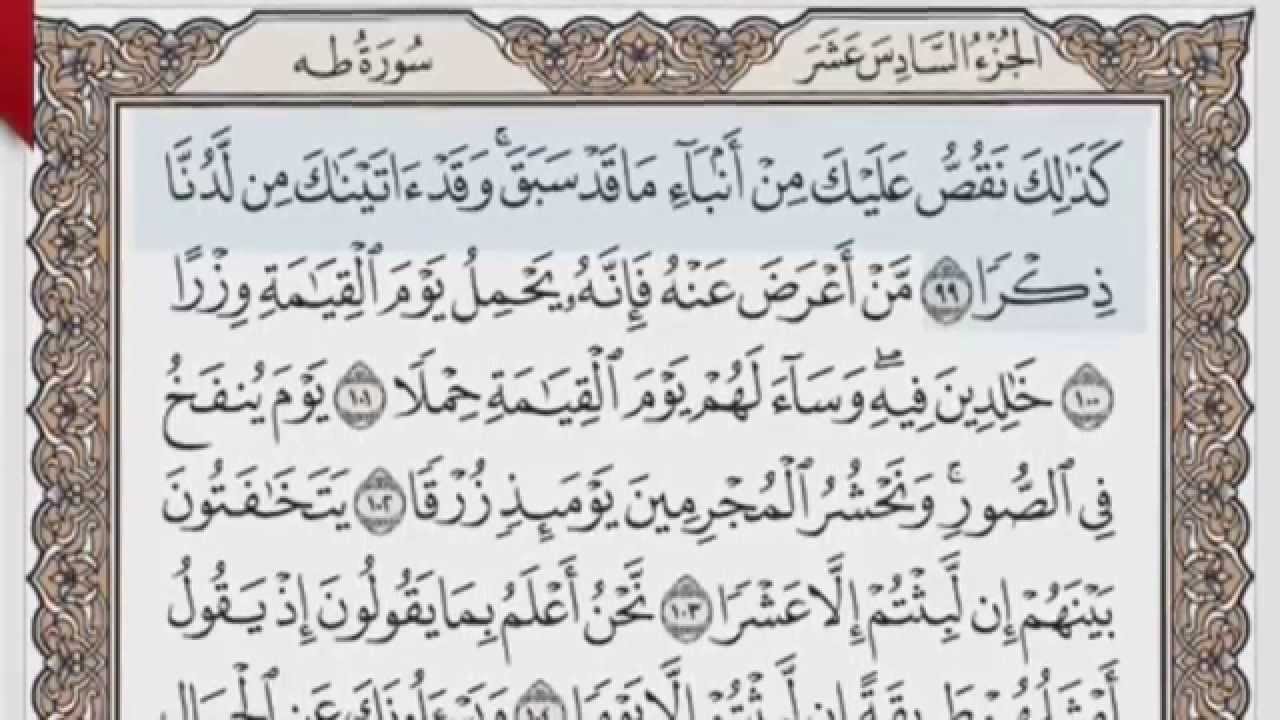 الجُزْءُ السَّادِسَ عَشَرَ
سُورَةُ طه
كَذَٰلِكَ نَقُصُّ عَلَيْكَ مِنْ أَنۢبَآءِ مَا قَدْ سَبَقَۚ وَقَدْ ءَاتَيْنَٰكَ مِن لَّدُنَّا
ذِكْرًا ٩٩ مَّنْ أَعْرَضَ عَنْهُ فَإِنَّهُۥ يَحْمِلُ يَوْمَ ٱلْقِيَٰمَةِ وِزْرًا
١٠٠ خَٰلِدِينَ فِيهِۖ وَسَآءَ لَهُمْ يَوْمَ ٱلْقِيَٰمَةِ حِمْلًا ١٠١ يَوْمَ يُنفَخُ
فِي ٱلصُّورِۚ وَنَحْشُرُ ٱلْمُجْرِمِينَ يَوْمَئِذٍ زُرْقًا ١٠٢ يَتَخَٰفَتُونَ
بَيْنَهُمْ إِن لَّبِثْتُمْ إِلَّا عَشْرًا ١٠٣ نَّحْنُ أَعْلَمُ بِمَا يَقُولُونَ إِذْ يَقُولُ
أَمْثَلُهُمْ طَرِيقَةً إِن لَّبِثْتُمْ إِلَّا يَوْمًا ١٠٤ وَيَسْـَٔلُونَكَ عَنِ ٱلْجِبَالِ